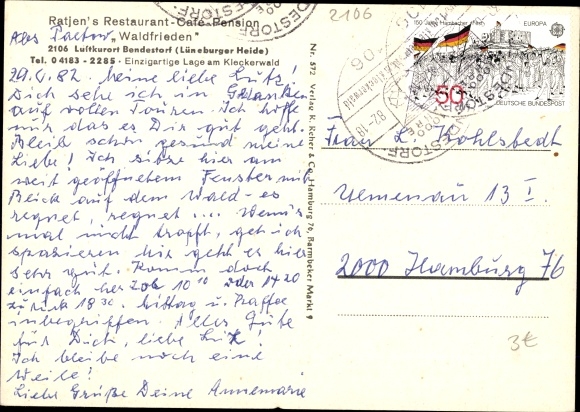 Ratjen's Restaurant-Café-Pension
„Waldfrieden"
2106 Luftkurort Bendestorf (Lüneburger Heide)
Tel. 04183-2285 · Einzigartige Lage am Kleckerwald
29.4.82. Meine liebe Luts!
Dich sehe ich in Gedanken
auf vollen Touren. Ich hoffe
mir das es Dir gut geht.
Bleib schön gesund meine
Liebe! Ich sitze hier am
weit geöffnetem Fenster mit
Blick auf dem Wald - es
regnet, regnet .... Wenn's
mal nicht tropft, geh ich
spazieren. Mir geht es hier
sehr gut. Komm doch
einfach her 10 10 oder 14 20
zurück 18 30. Mittag u. Kaffee
inbegriffen. Alles Gute
für Dich, liebe
Ich bleibe noch eine
Weile!
Liebe Grüße Deine Annemarie
Nr. 572 Verlag K. Kelher & Co. Hamburg 76, Barmbeker Markt 9
2106
150 Jahre Hambacher Fest
EUROPA
50
DEUTSCHE BUNDESPOST
BENDESTORF
Frau L. Kohlsbedt
13 I.
2000 Hamburg 76
3€